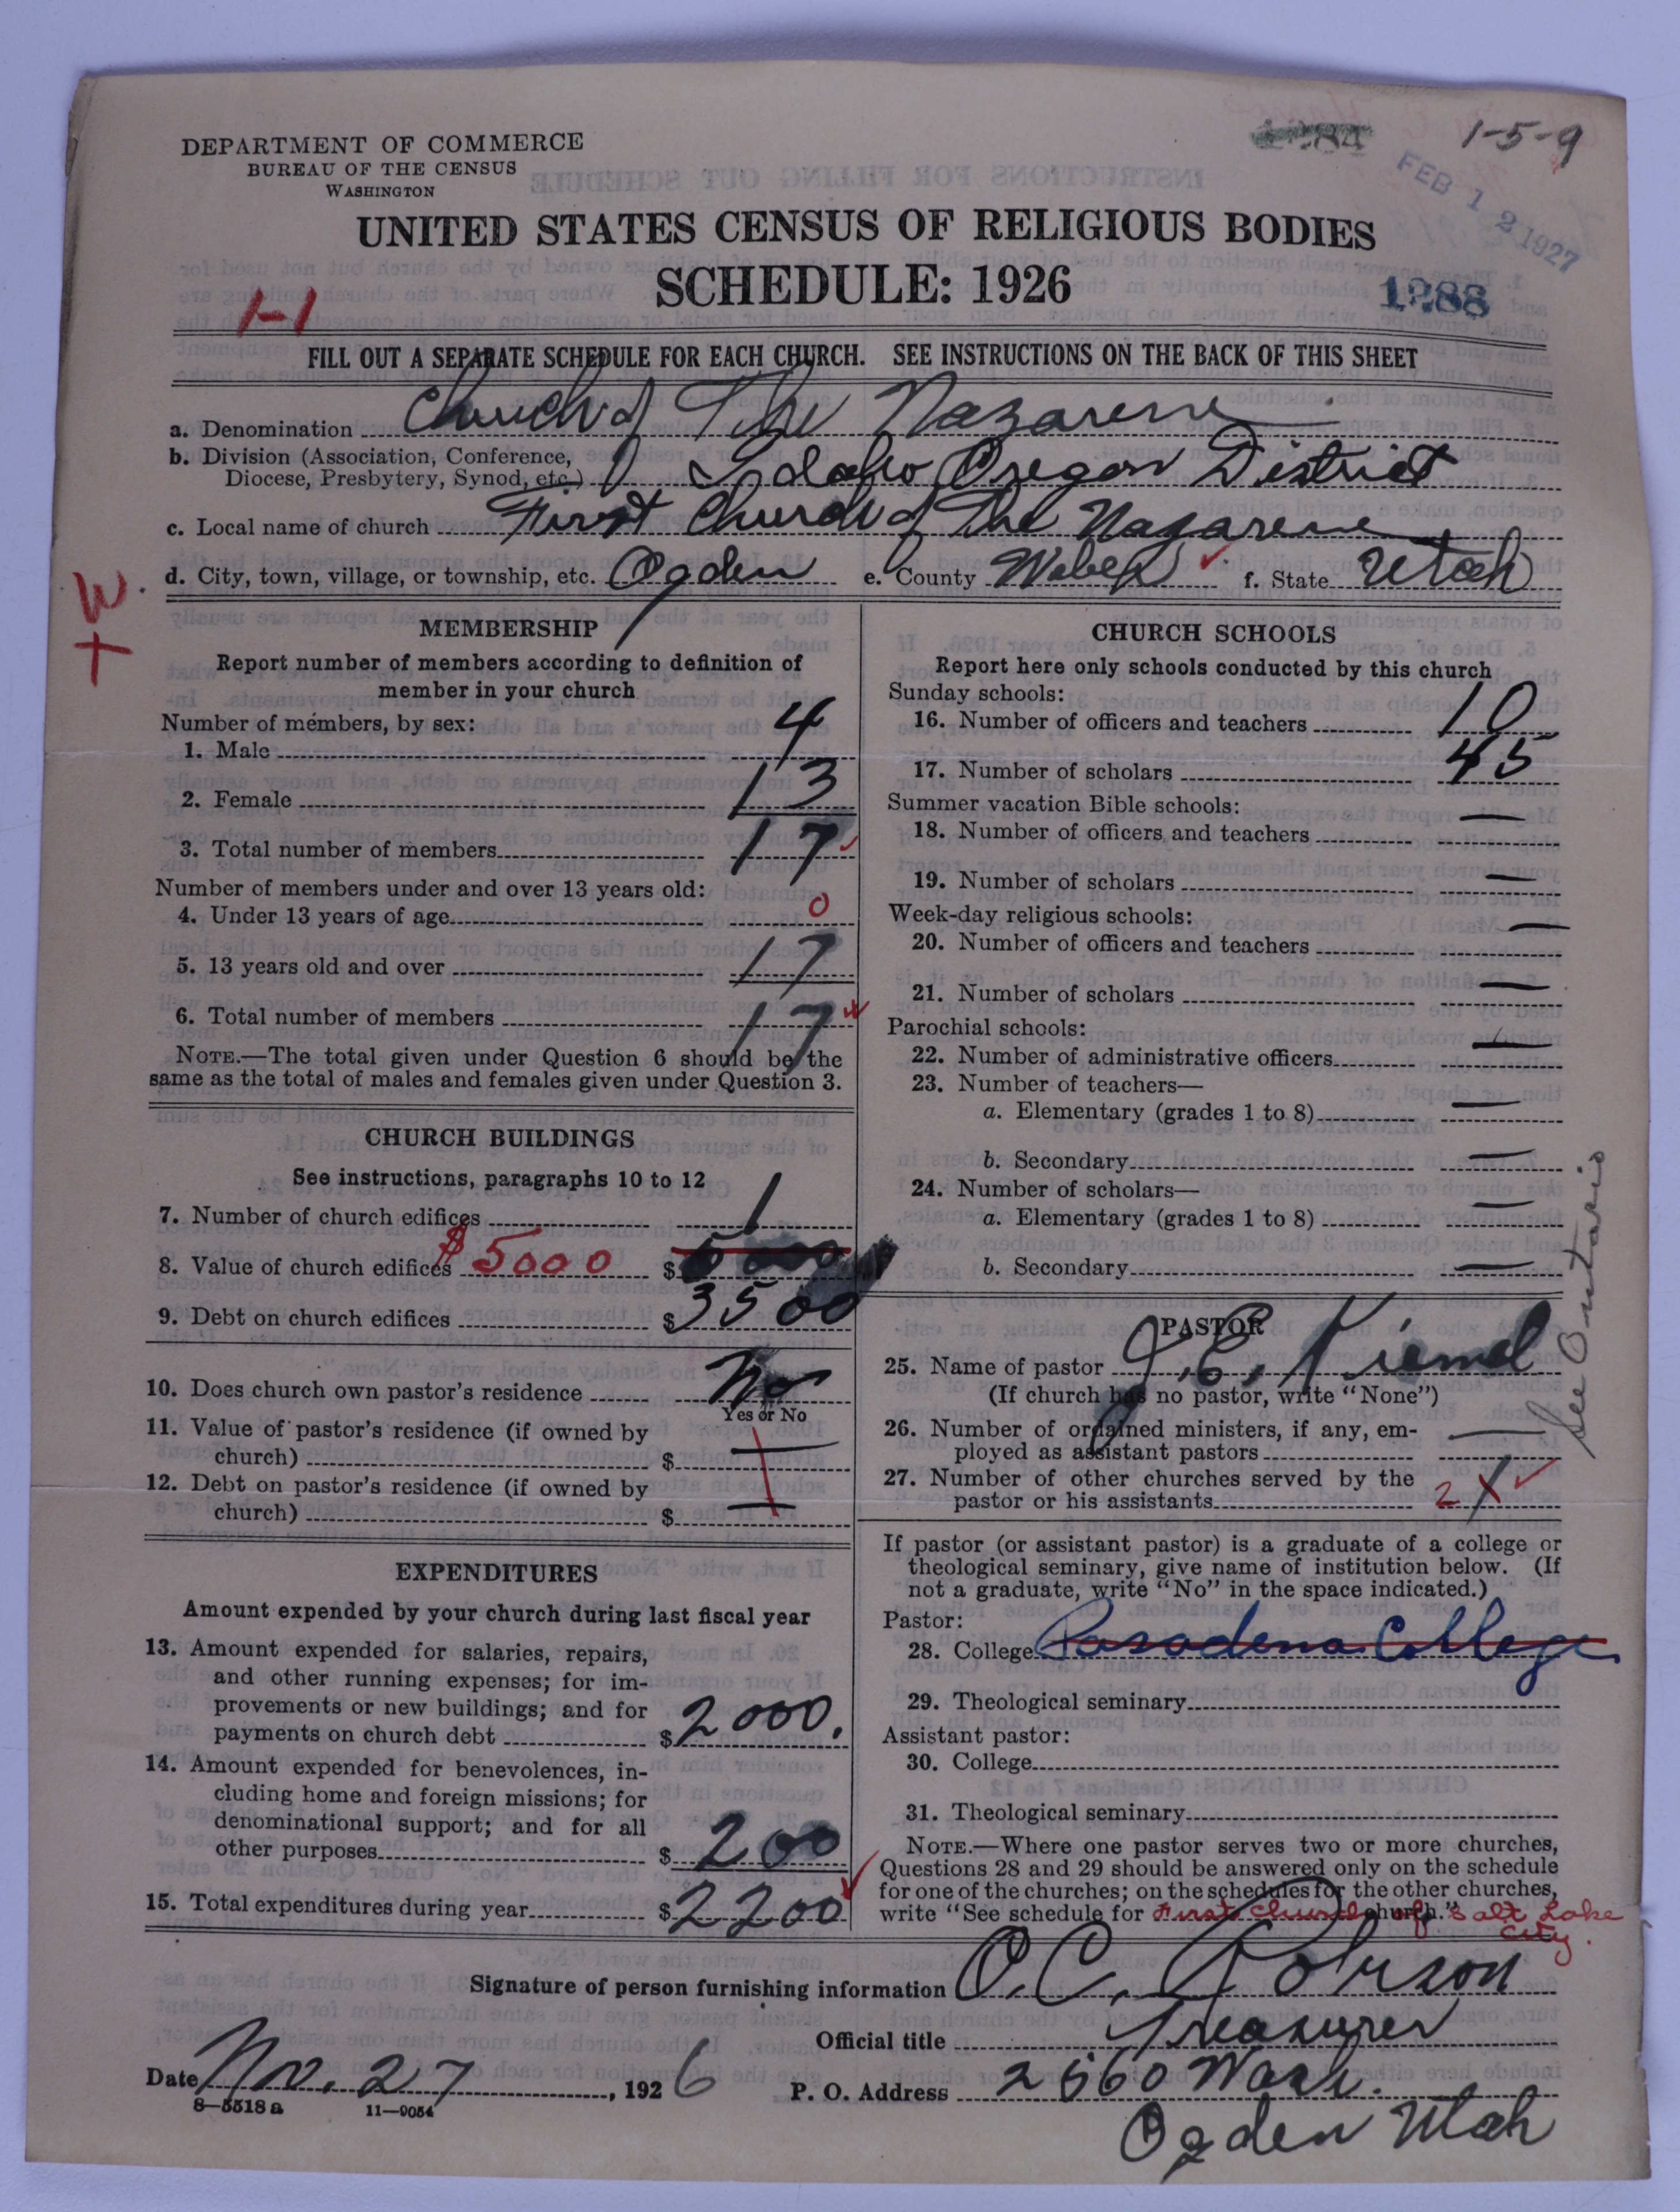 1-5-9
DEPARTMENT OF COMMERCE
BUREAU OF THE CENSUS
WASHINGTON
FEB 12 1927
UNITED STATES CENSUS OF RELIGIOUS BODIES
SCHEDULE: 1926
1288
1-1
FILL OUT A SEPARATE SCHEDULE FOR EACH CHURCH. SEE INSTRUCTIONS ON THE BACK OF THIS SHEET
a. Denomination Church of The Nazarene
b. Division (Association, Conference,
Diocese, Presbytery, Synod, etc.) Idaho Oregon District
c. Local name of church First Church of The Nazarene
d. City, town, village, or township, etc. Ogden e. County Weber f. State Utah
W.
MEMBERSHIP
Report number of members according to definition of
member in your church
Number of members, by sex:
1. Male 4
2. Female 13
3. Total number of members 17
Number of members under and over 13 years old:
4. Under 13 years of age 0
5. 13 years old and over 17
6. Total number of members 17
NOTE.—The total given under Question 6 should be the
same as the total of males and females given under Question 3.
CHURCH BUILDINGS
See instructions, paragraphs 10 to 12
7. Number of church edifices 1
8. Value of church edifices $5000 $
9. Debt on church edifices $3500
10. Does church own pastor's residence No
Yes or No
11. Value of pastor's residence (if owned by
church) $ —
12. Debt on pastor's residence (if owned by
church) $ —
EXPENDITURES
Amount expended by your church during last fiscal year
13. Amount expended for salaries, repairs,
and other running expenses; for im-
provements or new buildings; and for
payments on church debt $2000.
14. Amount expended for benevolences, in-
cluding home and foreign missions; for
denominational support; and for all
other purposes $200
15. Total expenditures during year $2200
CHURCH SCHOOLS
Report here only schools conducted by this church
Sunday schools:
16. Number of officers and teachers 10
17. Number of scholars 45
Summer vacation Bible schools:
18. Number of officers and teachers —
19. Number of scholars —
Week-day religious schools:
20. Number of officers and teachers —
21. Number of scholars —
Parochial schools:
22. Number of administrative officers —
23. Number of teachers—
a. Elementary (grades 1 to 8) —
b. Secondary —
24. Number of scholars—
a. Elementary (grades 1 to 8) —
b. Secondary —
See Ontario
PASTOR
25. Name of pastor J. E. Kiemel
(If church has no pastor, write "None")
26. Number of ordained ministers, if any, em-
ployed as assistant pastors —
27. Number of other churches served by the
pastor or his assistants 2
If pastor (or assistant pastor) is a graduate of a college or
theological seminary, give name of institution below. (If
not a graduate, write "No" in the space indicated.)
Pastor:
28. College Pasadena College
29. Theological seminary
Assistant pastor:
30. College
31. Theological seminary
NOTE.—Where one pastor serves two or more churches,
Questions 28 and 29 should be answered only on the schedule
for one of the churches; on the schedules for the other churches,
write "See schedule for First Church church." of Salt Lake
City.
Signature of person furnishing information O. C. Robison
Official title Treasurer
Date Nov. 27, 1926 P. O. Address 2560 Wash.
8—5518 a 11—9054
Ogden Utah